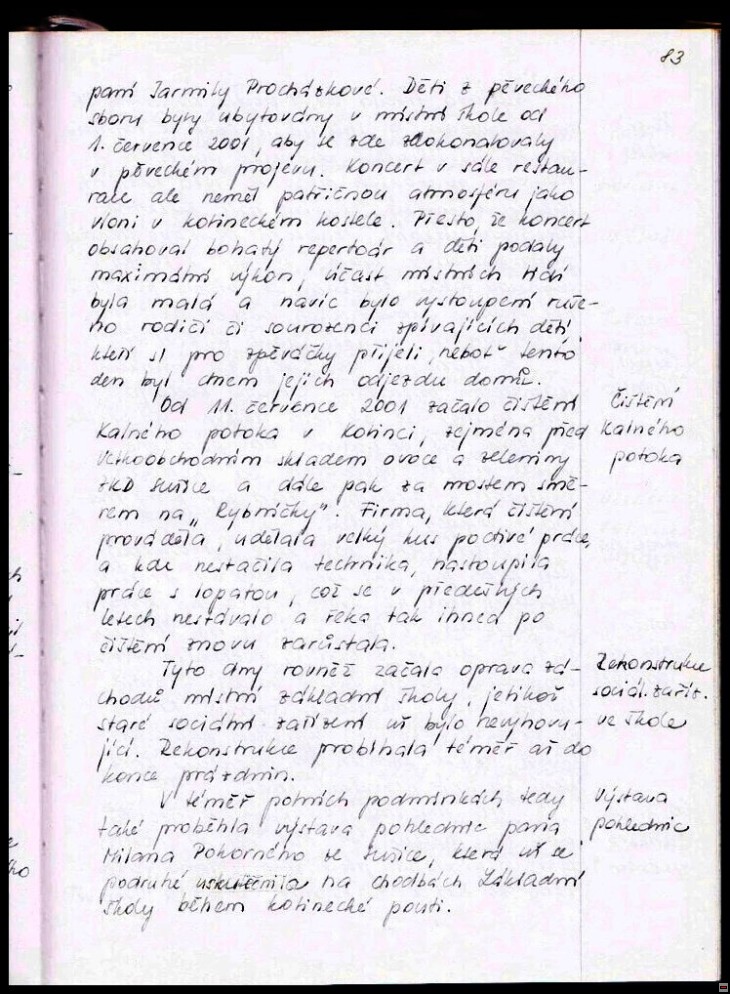 83
paní Jarmily Procházkové. Děti z pěveckého
sboru byly ubytovány v místní škole od
1. července 2001, aby se zde zdokonalovaly
v pěveckém projevu. Koncert v sále restau-
race ale neměl patřičnou atmosféru jako
vloni v kolineckém kostele. Přesto, že koncert
obsahoval bohatý repertoár a děti podaly
maximální výkon, účast místních lidí
byla malá a navíc bylo vystoupení ruše-
no rodiči či sourozenci zpívajících dětí,
kteří si pro zpěváčky přijeli, neboť tento
den byl dnem jejich odjezdu domů.
Od 11. července 2001 začalo čištění
Kalného potoka v Kolinci, zejména před
velkoobchodním skladem ovoce a zeleniny
ZKD Sušice a dále pak za mostem smě-
rem na „Rybníčky". Firma, která čištění
prováděla, udělala velký kus poctivé práce,
a kde nestačila technika, nastoupila
práce s lopatou, což se v předešlých
letech nestávalo a řeka tak ihned po
čištění znovu zarůstala.
Čištění
Kalného
potoka
Tyto dny rovněž začala oprava zá-
chodů místní základní školy, jelikož
staré sociální zařízení už bylo nevyhovu-
jící. Rekonstrukce probíhala téměř až do
konce prázdnin.
Rekonstrukce
sociál. zaříz.
ve škole
V téměř polních podmínkách tedy
také proběhla výstava pohlednic pana
Milana Pokorného ze Sušice, která už se
podruhé uskutečnila na chodbách Základní
školy během kolinecké pouti.
Výstava
pohlednic